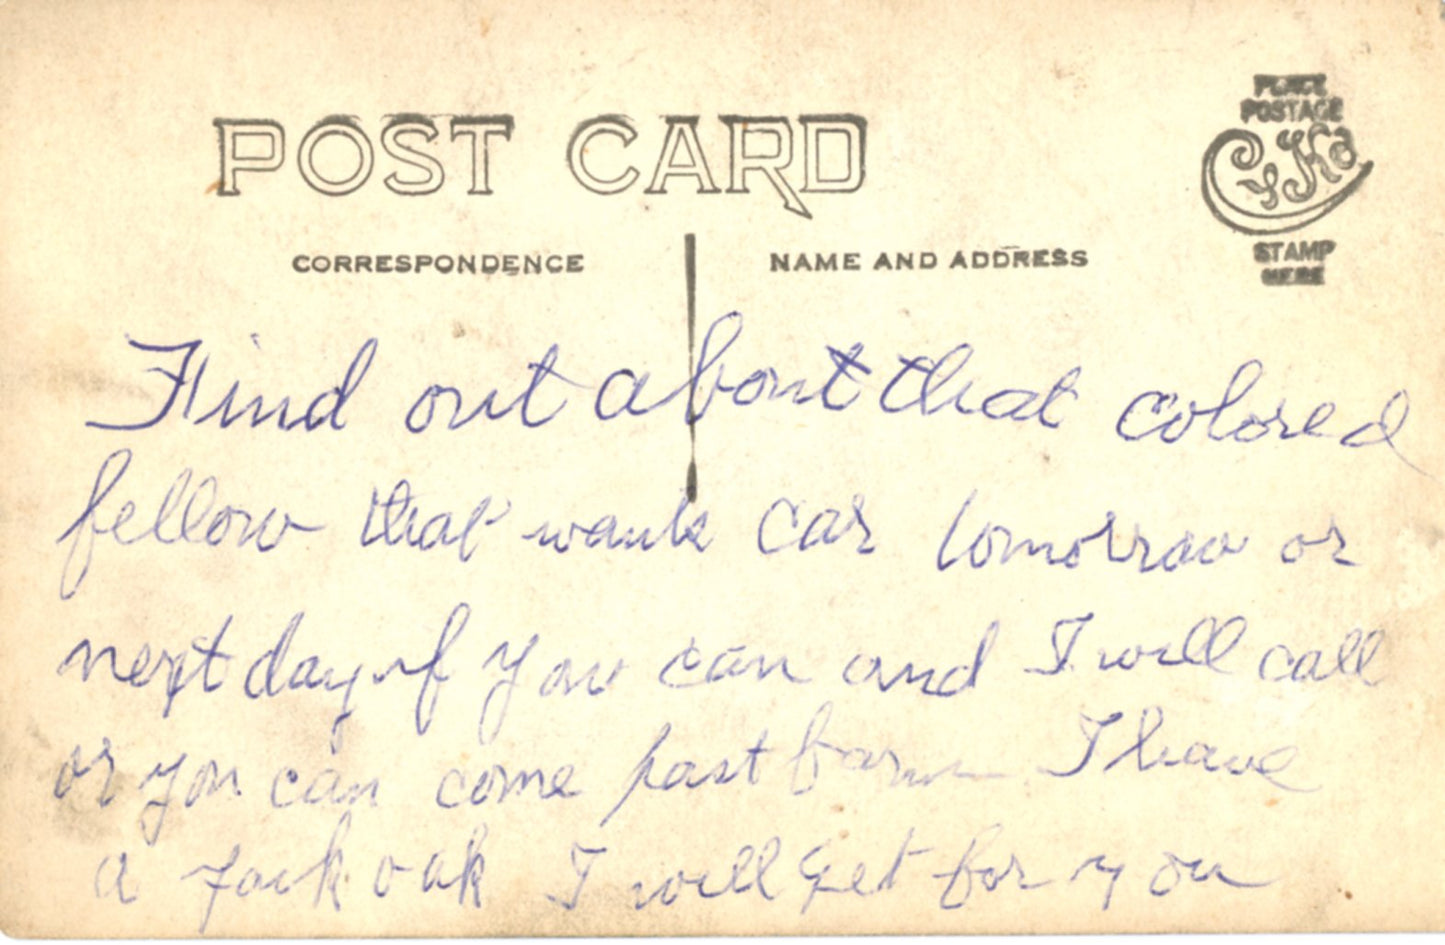 POST CARD
PLACE
POSTAGE
CyKo
STAMP
HERE
CORRESPONDENCE
NAME AND ADDRESS
Find out about that colored
fellow that wants car tomorrow or
next day if you can and I will call
or you can come past barn I have
a jack oak I will get for you